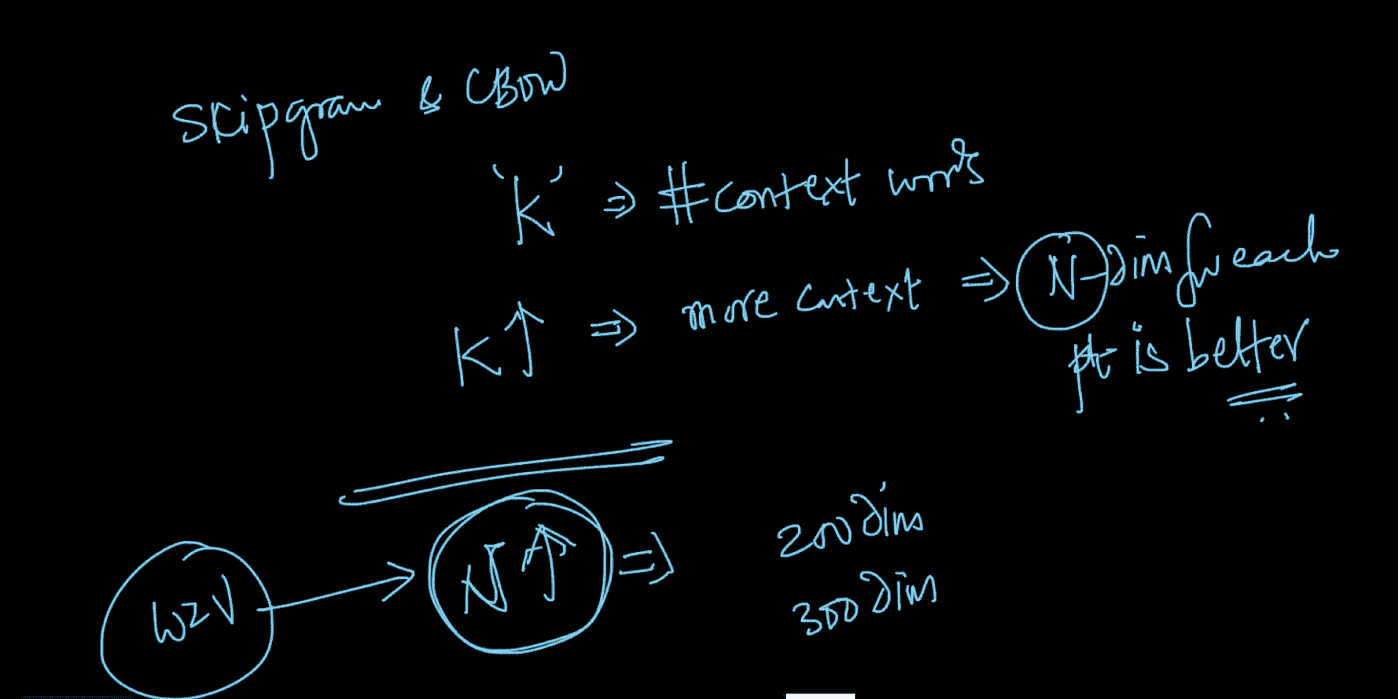 Skipgram & CBOW
'K' => #context words
K↑ => more context => N-dim for each
pt is better
W2V → N↑ => 200 dims
300 dims